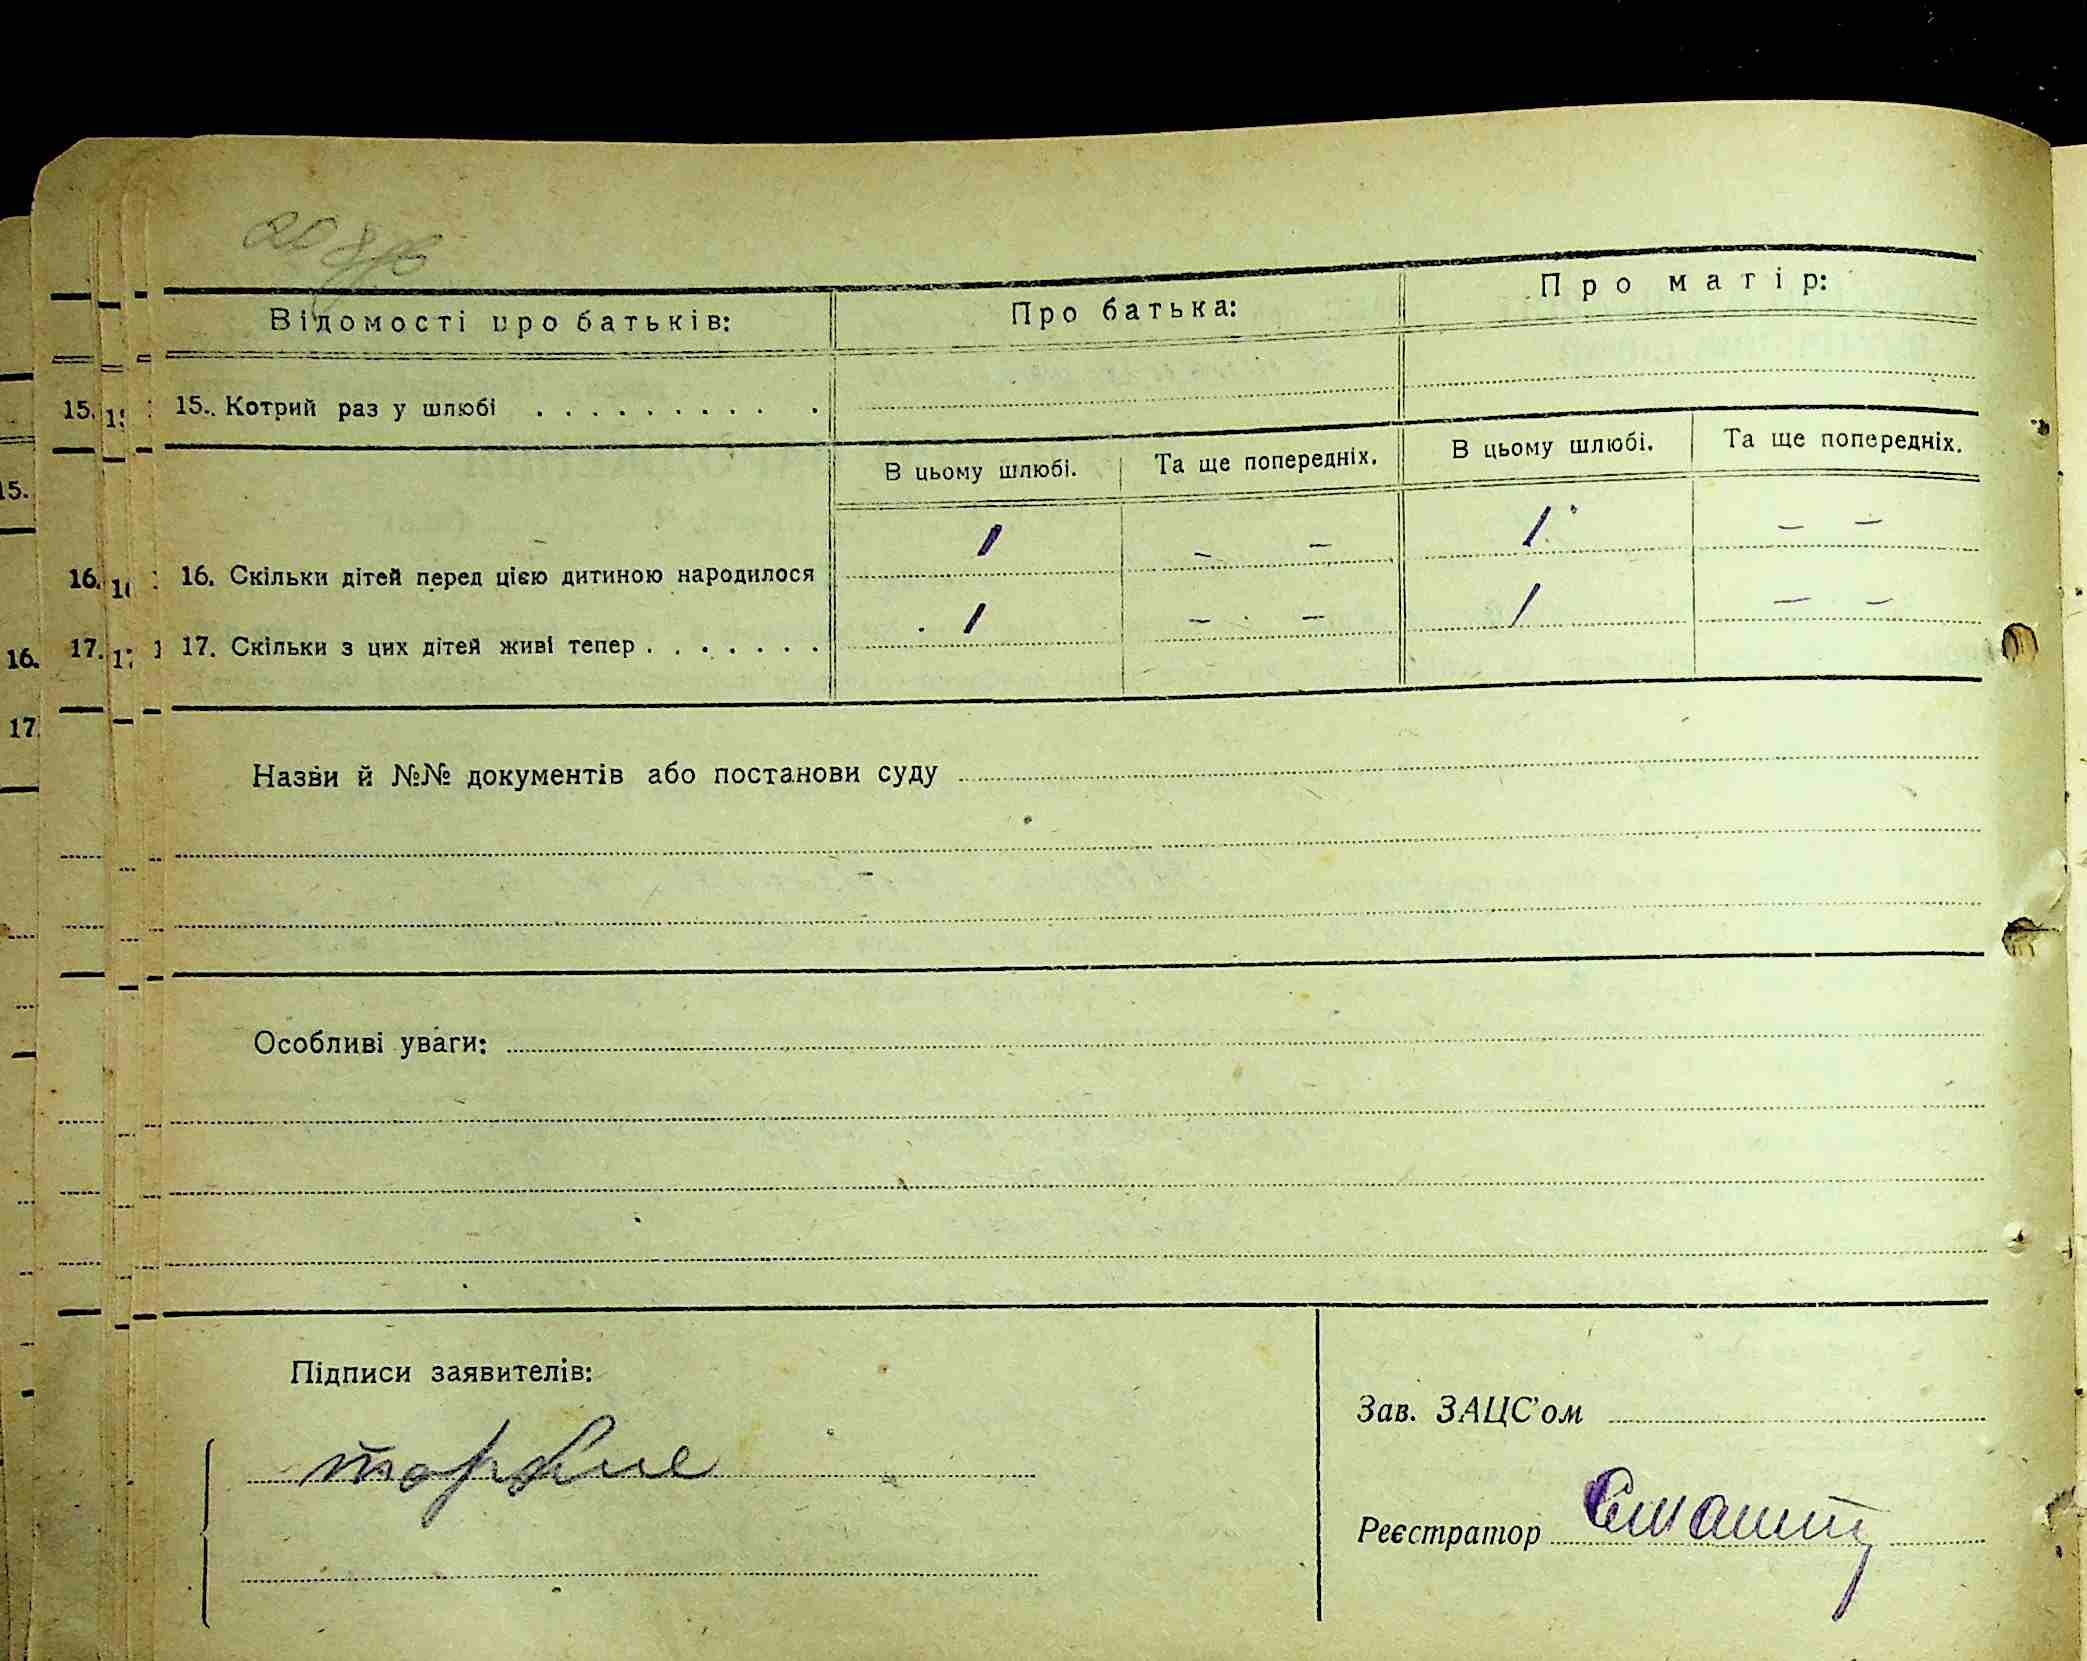 Відомості про батьків:
Про батька:
Про матір:
15. Котрий раз у шлюбі . . . . . . . . .
В цьому шлюбі.
Та ще попередніх.
В цьому шлюбі.
Та ще попередніх.
16. Скільки дітей перед цією дитиною народилося
1
– –
1
– –
17. Скільки з цих дітей живі тепер . . . . . . .
1
– –
1
– –
Назви й №№ документів або постанови суду
Особливі уваги:
Підписи заявителів:
Зав. ЗАЦС'ом
Реєстратор
15.
16.
17.
15.
16.
17.